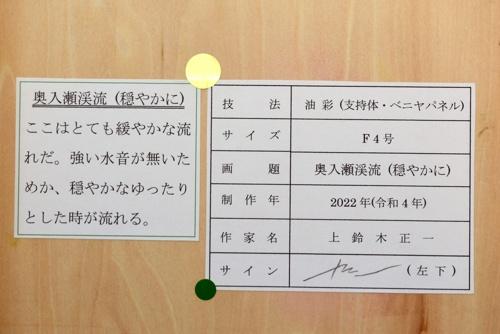 奥入瀬渓流 (穏やかに)
ここはとても緩やかな流
れだ。強い水音が無いた
めか、穏やかなゆったり
とした時が流れる。
技法 油彩 (支持体・ベニヤパネル)
サイズ F4号
画題 奥入瀬渓流 (穏やかに)
制作年 2022年(令和4年)
作家名 上鈴木正一
サイン (左下)